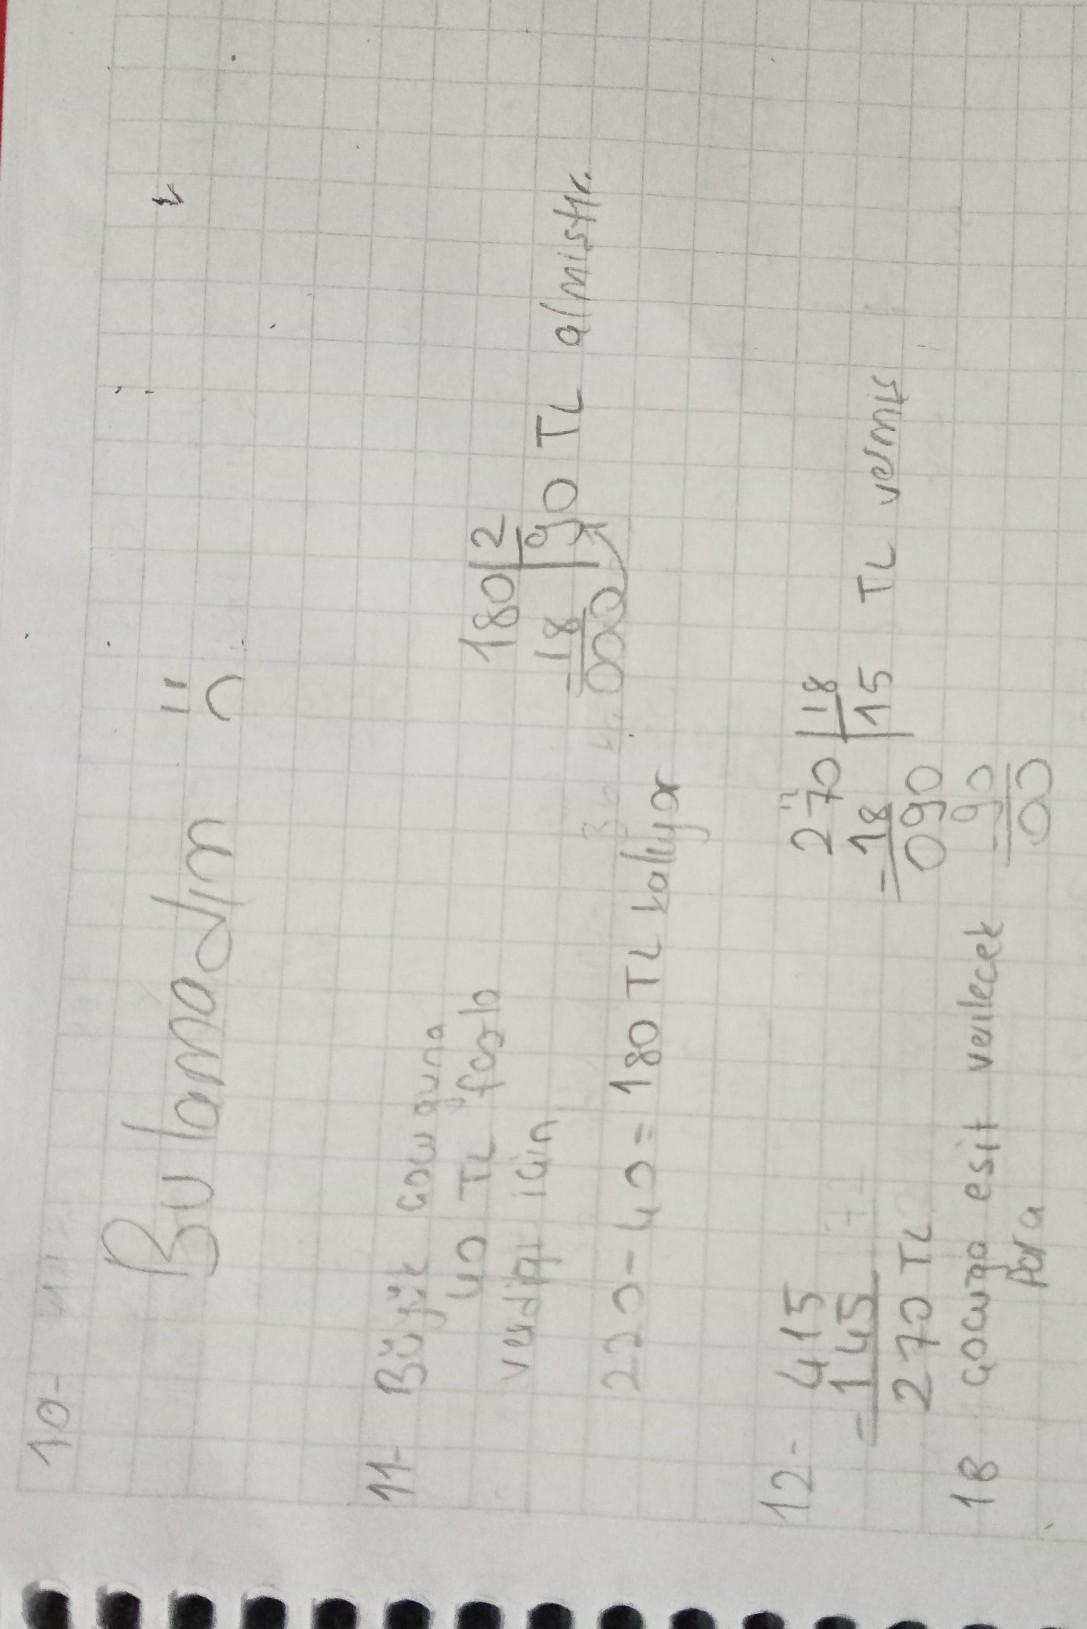 10-
Bulamadım :(
11- Büyük çocuğuna
40 TL fazla
verdiği için
220-40=180 TL kalıyor
180 2
-18 90 TL almıştır.
000
12- 415
-145
270 TL
18 çocuğa eşit verilecek
para
270 18
-18 15 TL vermiş
090
-90
00